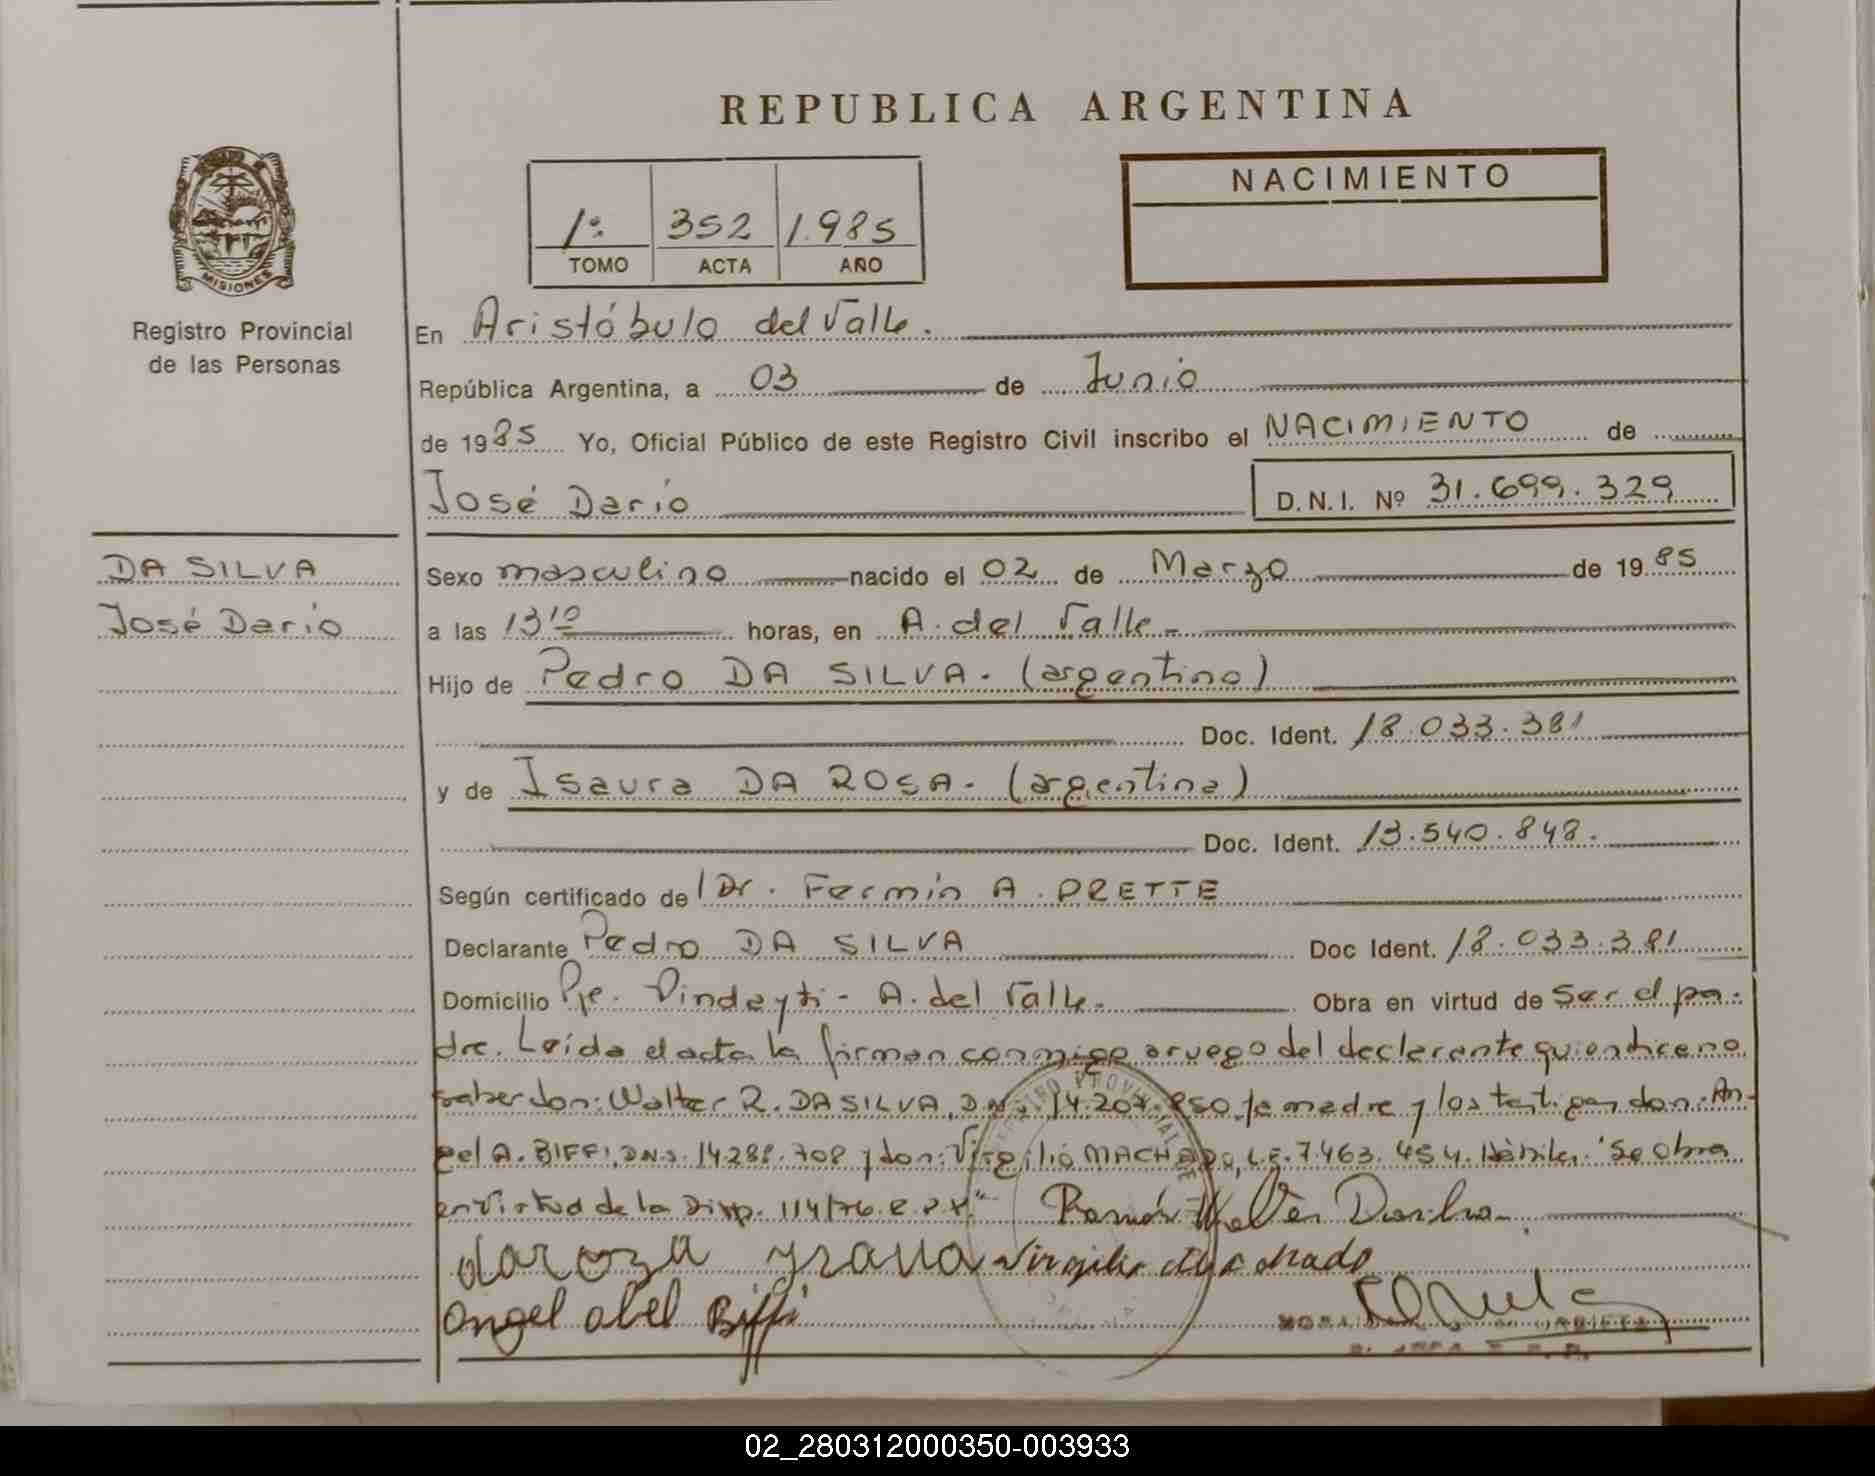 REPUBLICA ARGENTINA
1º 352 1.985
TOMO ACTA AÑO
NACIMIENTO
MISIONES
Registro Provincial
de las Personas
En Aristóbulo del Valle.
República Argentina, a 03 de Junio
de 1985 Yo, Oficial Público de este Registro Civil inscribo el NACIMIENTO de
José Dario D.N.I. Nº 31.699.329
DA SILVA
José Dario
Sexo masculino nacido el 02 de Marzo de 1985
a las 13 10 horas, en A. del Valle.
Hijo de Pedro DA SILVA. (argentino)
Doc. Ident. 18.033.381
y de Isaura DA ROSA. (argentina)
Doc. Ident. 13.540.848.
Según certificado de Dr. Fermín A. PRETTE
Declarante Pedro DA SILVA Doc Ident. 18.033.381
Domicilio Pje. Pindayti - A. del Valle. Obra en virtud de ser el pa-
dre. Leída el acta la firman conmigo a ruego del declarante quien dice no
saber don: Walter R. DA SILVA, D.N.I. 14.207.850, la madre y los testigos don: An-
gel A. BIFFI, D.N.I. 14.288.708 y don: Virgilio MACHADO, L.E. 7.463.454. Hábiles. "Se obra
en virtud de la Disp. 114/76. R.P.P."
Ramón Walter Dasilva
daroza
Virgilio Machado
Angel abel Biffi
REGISTRO PROVINCIAL DE
02_280312000350-003933